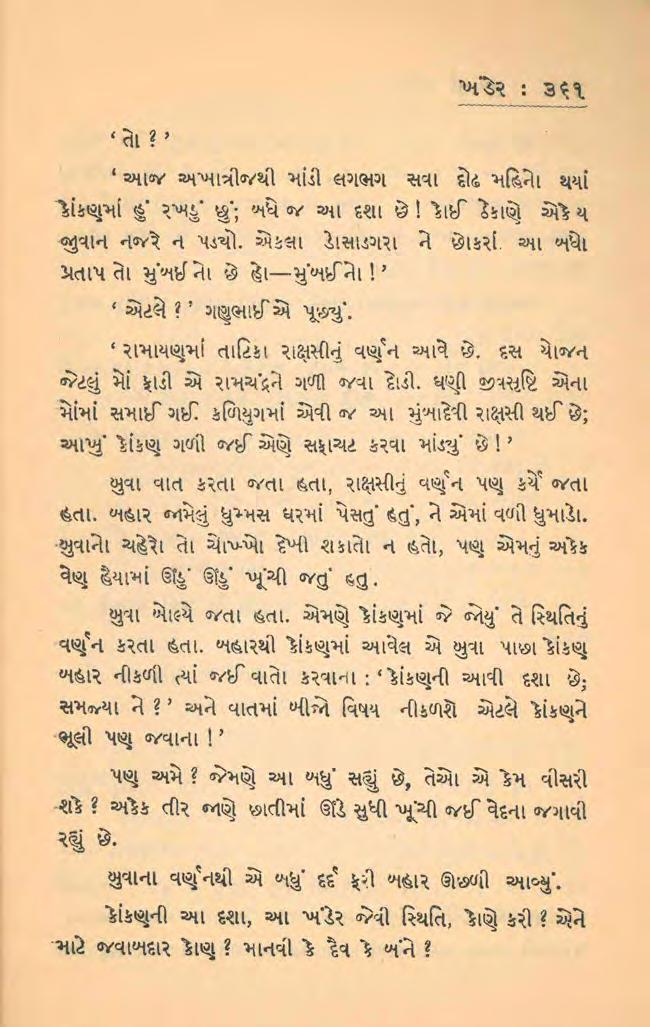 ખંડેર : ૩૬૧
‘ તો ? ’
‘ આજ અખાત્રીજથી માંડી લગભગ સવા દોઢ મહિનો થયાં
કોંકણમાં હું રખડું છું; બધે જ આ દશા છે ! કોઈ ઠેકાણે એકેય
જુવાન નજરે ન પડ્યો. એકલા ડોસાડગરા ને છોકરાં. આ બધો
પ્રતાપ તો મુંબઈનો છે હો—મુંબઈનો ! ’
‘ એટલે ? ’ ગણુભાઈએ પૂછ્યું.
‘ રામાયણમાં તાટિકા રાક્ષસીનું વર્ણન આવે છે. દસ યોજન
જેટલું મોં ફાડી એ રામચંદ્રને ગળી જવા દોડી. ઘણી જીવસૃષ્ટિ એના
મોંમાં સમાઈ ગઈ. કળિયુગમાં એવી જ આ મુંબાદેવી રાક્ષસી થઈ છે;
આખું કોંકણ ગળી જઈ એણે સફાચટ કરવા માંડ્યું છે ! ’
બુવા વાત કરતા જતા હતા, રાક્ષસીનું વર્ણન પણ કર્યે જતા
હતા. બહાર જામેલું ધુમ્મસ ઘરમાં પેસતું હતું, ને એમાં વળી ધુમાડો.
બુવાનો ચહેરો તો ચોખ્ખો દેખી શકાતો ન હતો, પણ એમનું અકેક
વેણ હૈયામાં ઊંડું ઊંડું ખૂંચી જતું હતુ.
બુવા બોલ્યે જતા હતા. એમણે કોંકણમાં જે જોયું તે સ્થિતિનું
વર્ણન કરતા હતા. બહારથી કોંકણમાં આવેલ એ બુવા પાછા કોંકણ
બહાર નીકળી ત્યાં જઈ વાતો કરવાના : ‘ કોંકણની આવી દશા છે;
સમજ્યા ને ? ’ અને વાતમાં બીજો વિષય નીકળશે એટલે કોંકણને
ભૂલી પણ જવાના ! ’
પણ અમે ? જેમણે આ બધું સહ્યું છે, તેઓ એ કેમ વીસરી
શકે ? અકેક તીર જાણે છાતીમાં ઊંડે સુધી ખૂંચી જઈ વેદના જગાવી
રહ્યું છે.
બુવાના વર્ણનથી એ બધું દર્દ ફરી બહાર ઊછળી આવ્યું.
કોંકણની આ દશા, આ ખંડેર જેવી સ્થિતિ, કોણે કરી ? એને
માટે જવાબદાર કોણ ? માનવી કે દૈવ કે બંને ?